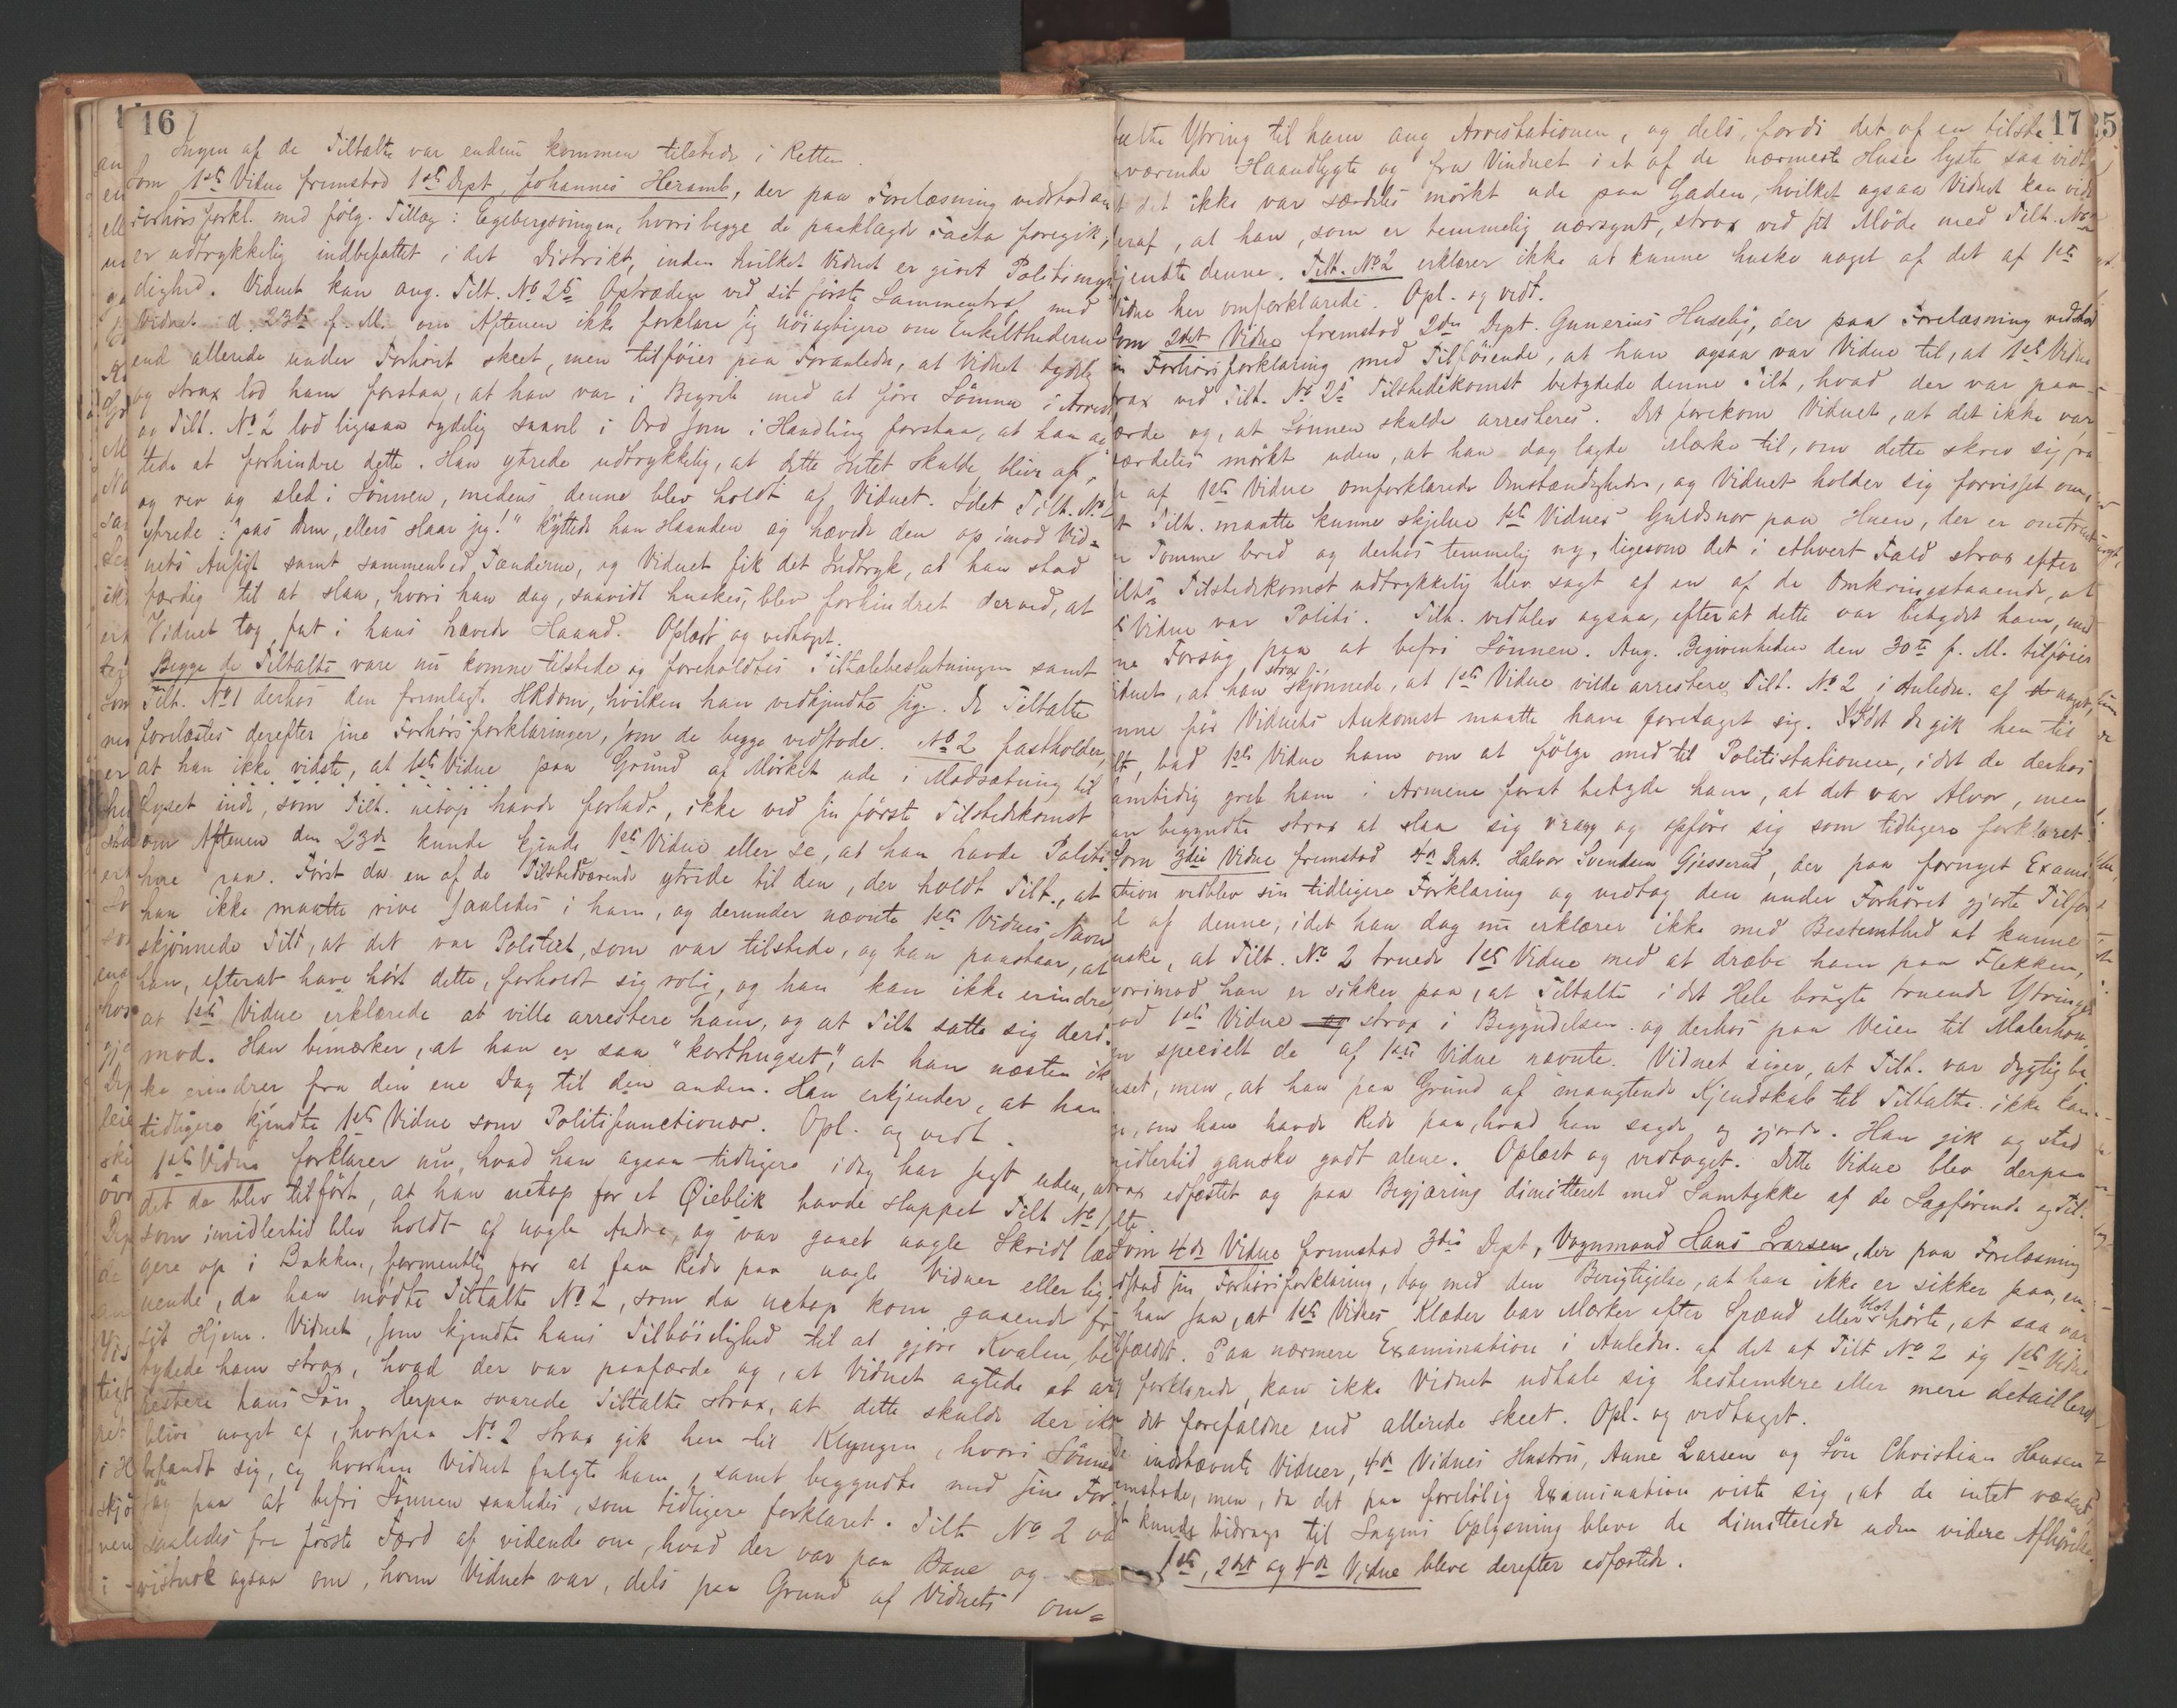 16
Ingen af de Tiltalte var endnu kommen tilstede i Retten.
Som 1ste Vidne fremstod 1ste Dept, Johannes Heramb, der paa Forelæsning vedstod sin
Forhørsforkl. med følg. Tillæg: Egebergsvingen, hvori begge de paaklagede Facta foregik,
er udtrykkelig indbefattet i det Distrikt, inden hvilket Vidnet er givet Politimyn-
dighed. Vidnet kan ang. Tilt. No 2s Optræden ved sit første Sammentræf med
Vidnet d. 23de f. M. om Aftenen ikke forklare sig nöiagtigere om Enkelthederne
end allerede under Forhöret skeet, men tilföies paa Foranledn, at Vidnet tydelig
og strax lod ham forstaa, at han var i Begreb med at före Sönnen i Arrest
og Tilt. No 2 lod ligesaa tydelig saavel i Ord som i Handling forstaa, at han ag-
tede at forhindre dette. Han ytrede udtrykkelig, at dette Intet skulde blive af,
og rev og sled i Sönnen, medens denne blev holdt af Vidnet. Idet Tilt. No 2
ytrede: "pas Dem, ellers slaar jeg!" knyttede han Haanden og hævede den op imod Vid-
nets Ansigt samt sammenbed Tænderne, og Vidnet fik det Indtryk, at han stod
færdig til at slaa, hvori han dog, saavidt huskes, blev forhindret derved, at
Vidnet tog fat i hans hævede Haand. Oplæst og vedtaget.
Begge de Tiltalte vare nu komne tilstede og foreholdtes Tiltalebeslutningen samt
Tilt. No 1 derhos den fremlagte HRdom, hvilken han vedkjendte sig. De Tiltalte
forelæstes derefter sine Forhörsforklaringer, som de begge vedstode. No 2 fastholder,
at han ikke vidste, at 1ste Vidne paa Grund af Mörket ude i Modsætning til
Lyset inde, som Tilt. netop havde forladt, ikke ved sin förste Tilstedekomst
om Aftenen den 23de kunde kjende 1ste Vidne eller se, at han havde Politi-
hue paa. Först da en af de Tilstedeværende ytrede til den, der holdt Tilt., at
han ikke maatte rive saaledes i ham, og derunder nævnte 1ste Vidnes Navn
skjönnede Tilt, at det var Politiet, som var tilstede, og han paastaar, at
han, efterat have hört dette, forholdt sig rolig, og han kan ikke erindre
at 1ste Vidne erklærede at ville arrestere ham, og at Tilt satte sig deri-
mod. Han bemærker, at han er saa "korthugset", at han næsten ik-
ke erindrer fra den ene Dag til den anden. Han erkjender, at han
tidligere kjendte 1ste Vidne som Politifunctionær. Opl. og vedt.
1ste Vidne forklarer nu, hvad han ogsaa tidligere idag har sagt uden, at
det da blev tilfört, at han netop for et Øieblik havde sluppet Tilt No 1,
som imidlertid blev holdt af nogle Andre, og var gaaet nogle Skridt læn-
gere op i Bakken, formentlig for at faa Rede paa nogle Vidner eller lig-
nende, da han mödte Tiltalte No 2, som da netop kom gaaende fra
sit Hjem. Vidnet, som kjendte hans Tilböielighed til at gjöre Kvalm, be-
tydede ham strax, hvad der var paafærde og, at Vidnet agtede at ar-
restere hans Sön. Herpaa svarede Tiltalte strax, at dette skulde der ikke
blive noget af, hvorpaa No 2 strax gik hen til Klyngen, hvori Sönnen
befandt sig, og hvorhen Vidnet fulgte ham, samt begyndte med sine For-
søg paa at befri Sönnen saaledes, som tidligere forklaret. Tilt. No 2 var
saaledes fra förste Færd af vidende om, hvad der var paa Bane og
vistnok ogsaa om, hvem Vidnet var, dels paa Grund af Vidnets om-
17
talte Ytring til ham ang Arrestationen, og dels, fordi det af en tilste-
værende Haandlygte og fra Vinduet i et af de nærmeste Huse lyste saa vidt
at det ikke var særdeles mörkt ude paa Gaden, hvilket ogsaa Vidnet kan vide
deraf, at han, som er temmelig nærsynt, strax ved sit Möde med Tilt. No 2
kjendte denne. Tilt. No 2 erklærer ikke at kunne huske noget af det af 1ste
Vidne her omforklarede. Opl. og vedt.
Som 2det Vidne fremstod 2den Dept. Gunerius Huseby, der paa Forelæsning vedstod
sin Forhörsforklaring med Tilföiende, at han ogsaa var Vidne til, at 1ste Vidne
strax ved Tilt. No 2s Tilstedekomst betydede denne Tilt, hvad der var paa-
færde og, at Sönnen skulde arresteres. Det forekom Vidnet, at det ikke var
særdeles mörkt uden, at han dog lagde Mærke til, om dette skrev sig fra
de af 1ste Vidne omforklarede Omstændigheder, og Vidnet holder sig forvisset om,
at Tilt. maatte kunne skjelne 1ste Vidnes Guldsnor paa Huen, der er omtrent
en Tomme bred og derhos temmelig ny, ligesom det i ethvert Fald strax efter
Tilts Tilstedekomst udtrykkelig blev sagt af en af de Omkringstaaende, at
1ste Vidne var Politi. Tilt. vedblev ogsaa, efterat dette var betydet ham, med
sine Forsög paa at befri Sönnen. Ang. Begivenheden den 30te f. M. tilföies
Vidnet, at han strax skjönnede, at 1ste Vidne vilde arrestere Tilt. No 2 i Anledn. af noget,
denne för Vidnets Ankomst maatte have foretaget sig. Idet de gik hen til
Tilt, bad 1ste Vidne ham om at fölge med til Politistationen, idet de derhos
samtidig greb ham i Armene forat betyde ham, at det var Alvor, men
han begyndte strax at slaa sig vrang og opføre sig som tidligere forklaret.
Som 3die Vidne fremstod 4de Dept. Halvor Svendsen Gjesserud, der paa fornyet Exami-
nation vedblev sin tidligere Forklaring og vedtog den under Forhöret gjorte Tilför-
sel af denne, idet han dog nu erklærer ikke med Bestemthed at kunne
huske, at Tilt. No 2 truede 1ste Vidne med at dræbe ham paa Flekken,
hvorimod han er sikker paa, at Tiltalte i det Hele brugte truende Ytringer
mod 1ste Vidne strax i Begyndelsen og derhos paa Veien til Malerhau-
gen specielt de af 1ste Vidne nævnte. Vidnet siger, at Tilt. var dygtig be-
ruset, men, at han paa Grund af mangtende Kjendskab til Tiltalte ikke kan
sige, om han havde Rede paa, hvad han sagde og gjorde. Han gik og stod
imidlertid ganske godt alene. Oplæst og vedtaget. Dette Vidne blev derpaa
strax edfæstet og paa Begjæring dimitteret med Samtykke af de Sagførende og Til-
talte.
Som 4de Vidne fremstod 3die Dept, Vognmand Hans Larsen, der paa Forelæsning
vedstod sin Forhörsforklaring, dog med den Berigtigelse, at han ikke er sikker paa, om
han saa, at 1ste Vidnes Klæder bar Mærker efter Spænd eller blot hörte, at saa var
Tilfældet. Paa nærmere Examination i Anledn. af det af Tilt No 2 og 1ste Vidne
forklarede, kan ikke Vidnet udtale sig bestemtere eller mere detailleret
om det forefaldne end allerede skeet. Opl. og vedtaget.
De indstævnte Vidner, 4de Vidnes Hustru, Anne Larsen og Sön Christian Hansen
fremstode, men, da det paa forelöbig Examination viste sig, at de intet væsent-
ligt kunde bidrage til Sagens Oplysning bleve de dimitterede uden videre Afhörelse.
1ste, 2det og 4de Vidne bleve derefter edfæstede.
25